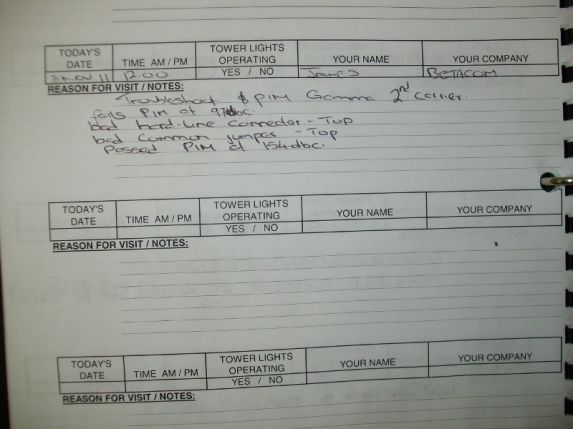 TODAY'S DATE TIME AM / PM TOWER LIGHTS OPERATING YES / NO YOUR NAME YOUR COMPANY
NOV 11 12:00 JAMES BETACOM
REASON FOR VISIT / NOTES:
Troubleshoot & PIM Gamma 2nd carrier.
fails PIM at 97dbc.
bad hard-line connector - Top
bad common jumper - Top
Passed PIM at 154dbc.
TODAY'S DATE TIME AM / PM TOWER LIGHTS OPERATING YES / NO YOUR NAME YOUR COMPANY
REASON FOR VISIT / NOTES:
TODAY'S DATE TIME AM / PM TOWER LIGHTS OPERATING YES / NO YOUR NAME YOUR COMPANY
REASON FOR VISIT / NOTES: